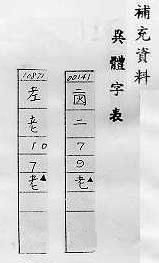 補充資料
異體字表
00141
㐁
二
7
9
老▲
10871
左
老
10
7
老▲